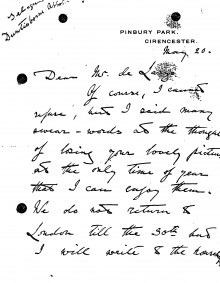 Telegrams
PINBURY PARK,
CIRENCESTER.
May 20.
Dear Mr. de L
Of course, I cannot
refuse, but I said many
swear-words at the thought
of losing your lovely pictures
at the only time of year
that I can enjoy them.
We do not return to
London till the 30th but
I will write to the